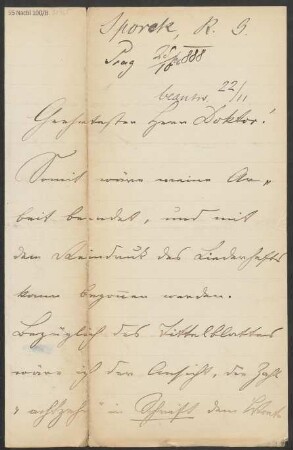 55 Nachl 100/B
Sporck, R. G.
Prag 25/10 1888
beantw. 22/11
Geehrtester Herr Doktor!
Somit wäre meine Ar„
beit beendet, und mit
dem Reindruck des Liederhefts
kann begonnen werden.
Bezüglich des Tittelblattes
wäre ich der Ansicht, die Zahl
„achtzehn" in Schrift dem